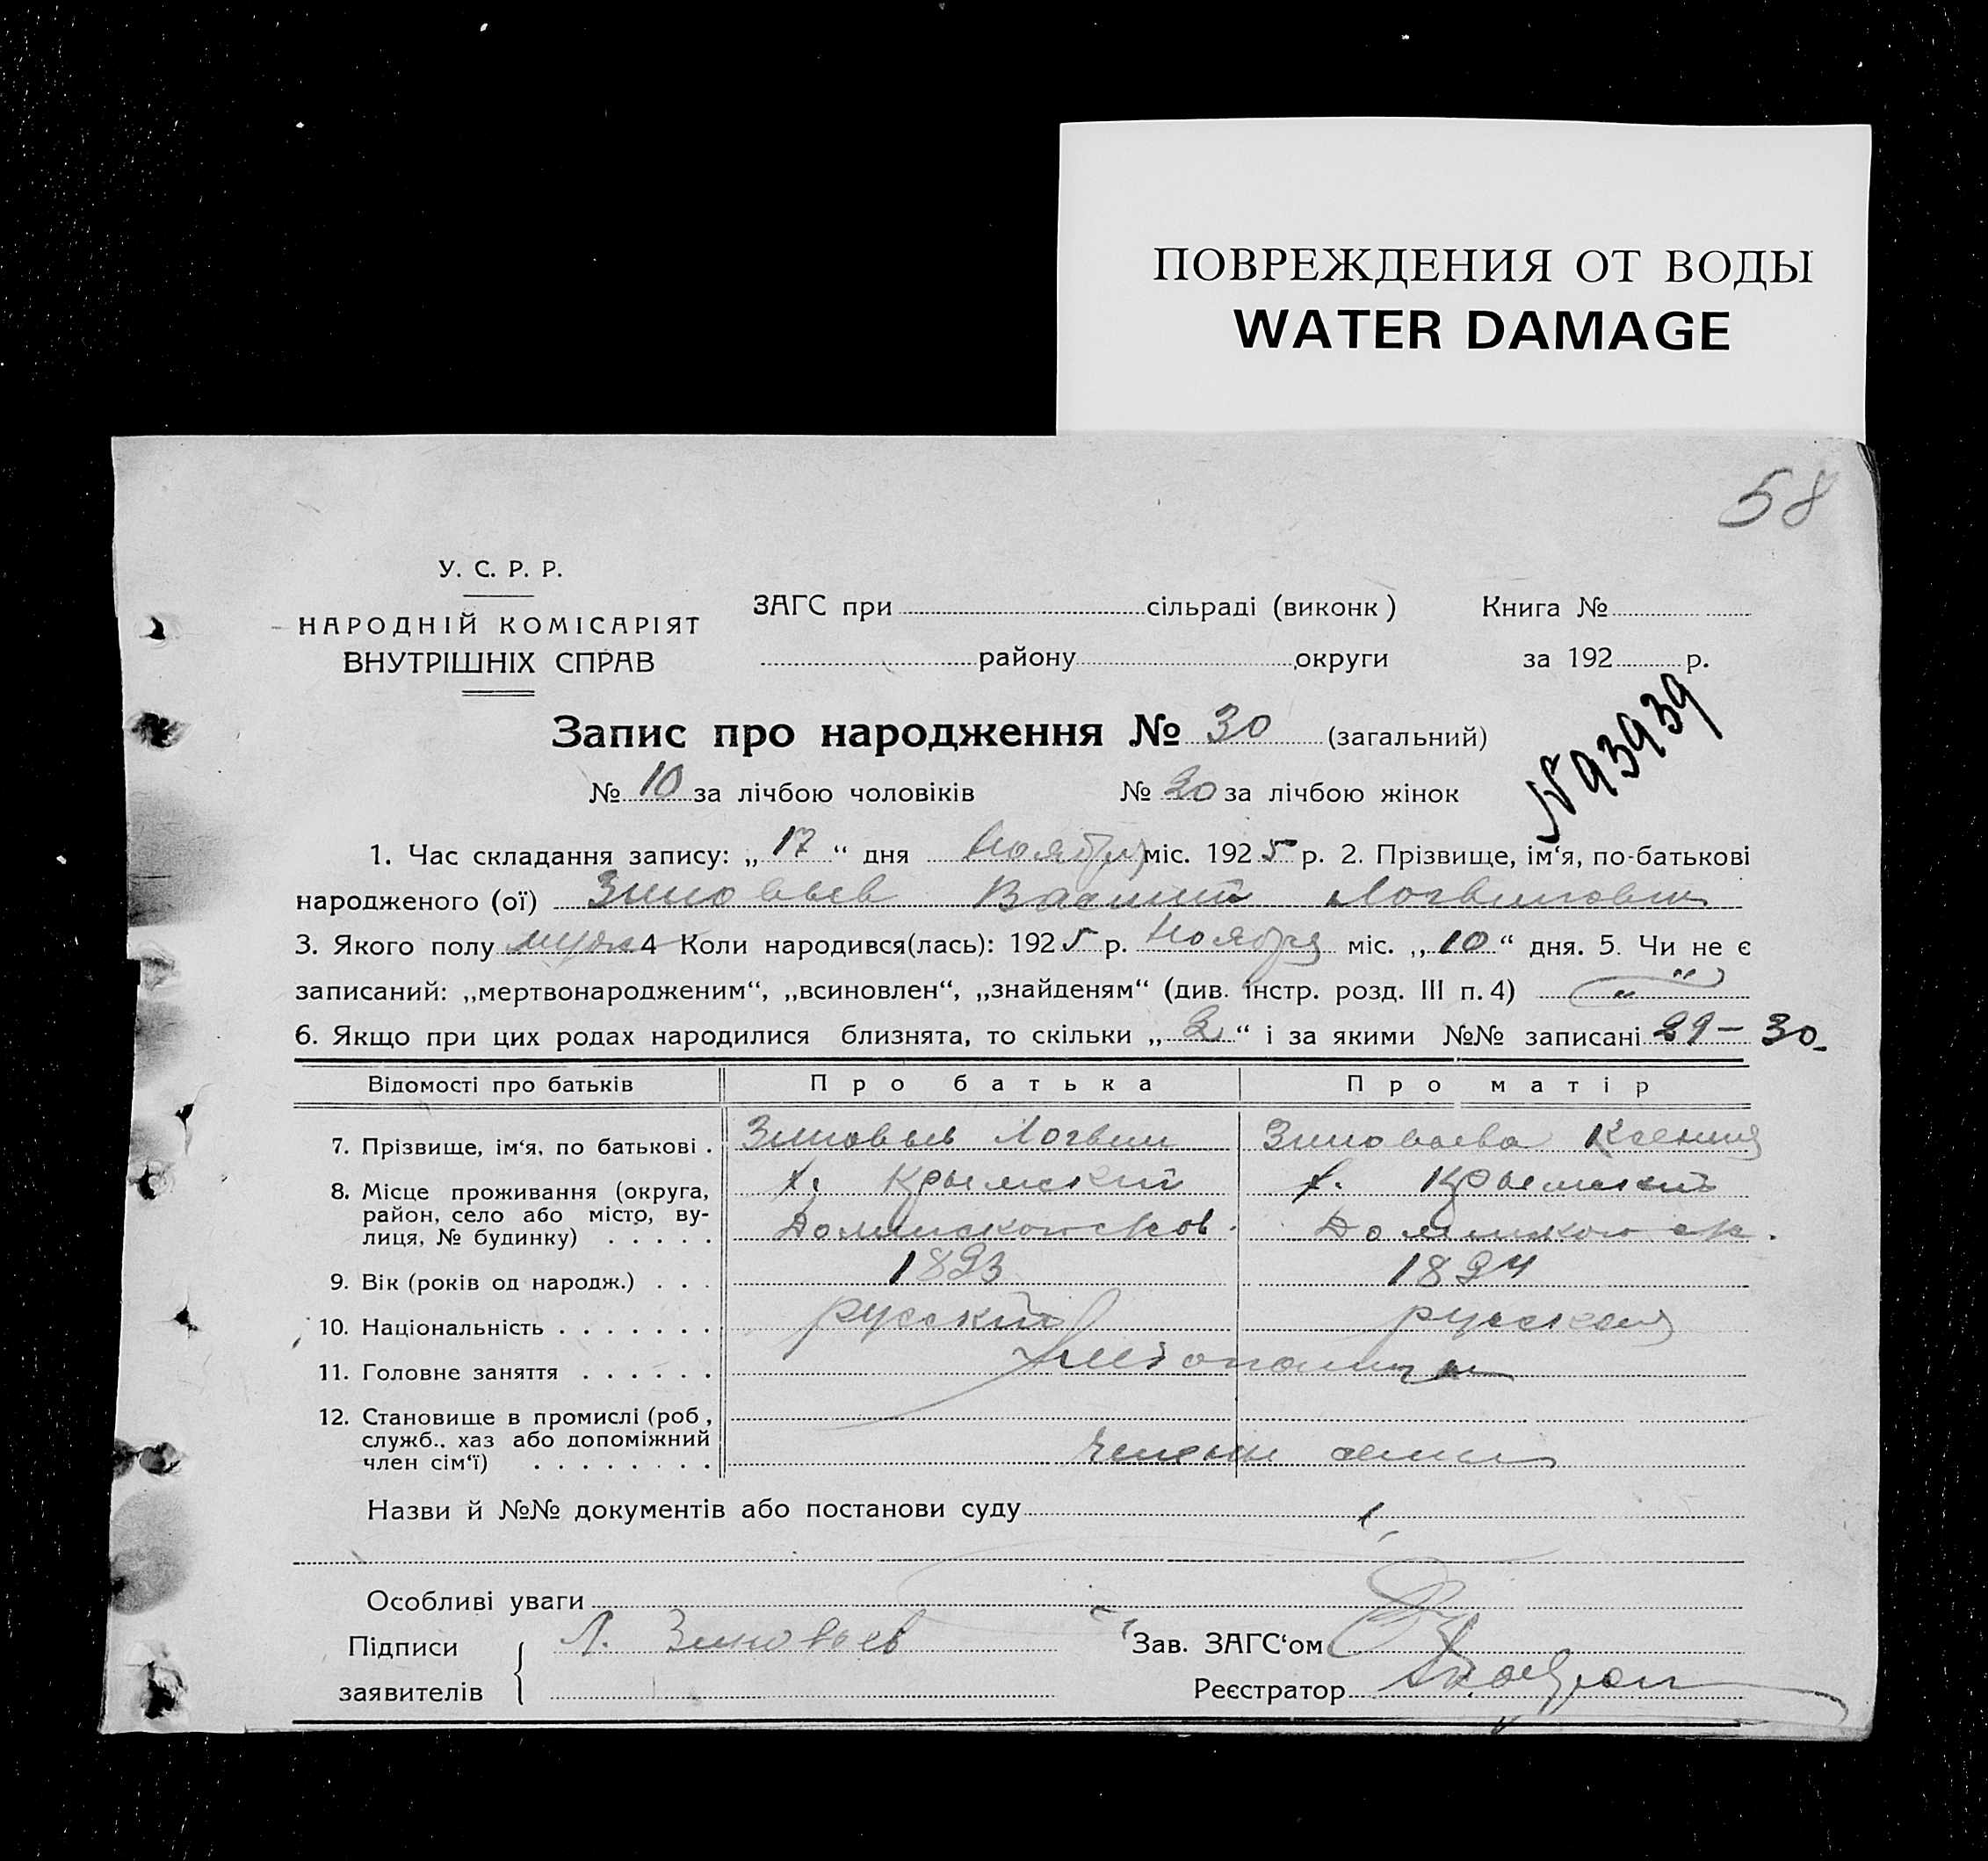 ПОВРЕЖДЕНИЯ ОТ ВОДЫ
WATER DAMAGE
58
У. С. Р. Р.
НАРОДНІЙ КОМІСАРІЯТ
ВНУТРІШНІХ СПРАВ
ЗАГС при сільраді (виконк) Книга №
району округи за 192 р.
N 93939
Запис про народження № 30 (загальний)
№ 10 за лічбою чоловіків № 20 за лічбою жінок
1. Час складання запису: „17“ дня Ноября міс. 1925 р. 2. Прізвище, ім‘я, по-батькові
народженого (ої) Зиновьев Василий Логвинович
3. Якого полу муж 4 Коли народився(лась): 1925 р. Ноября міс. „10“ дня. 5. Чи не є
записаний: „мертвонародженим“, „всиновлен“, „знайденям“ (див. інстр. розд. III п. 4) „ “
6. Якщо при цих родах народилися близнята, то скільки „2“ і за якими №№ записані 29 – 30
Відомості про батьків Про батька Про матір
7. Прізвище, ім‘я, по батькові . Зиновьев Логвин Зиновьева Ксения
8. Місце проживання (округа, х. Крымский х. Крымский
район, село або місто, ву-
лиця, № будинку) . . . . .
9. Вік (років од народж.) . . . 1893 1894
10. Національність . . . . . . . русский русская
11. Головне заняття . . . . . .
12. Становище в промислі (роб.,
служб.. хаз або допоміжний
член сім‘ї) . . . . . . . . члены семьи
Назви й №№ документів або постанови суду
Особливі уваги
Підписи Л. Зиновьев Зав. ЗАГС‘ом
заявителів Реєстратор